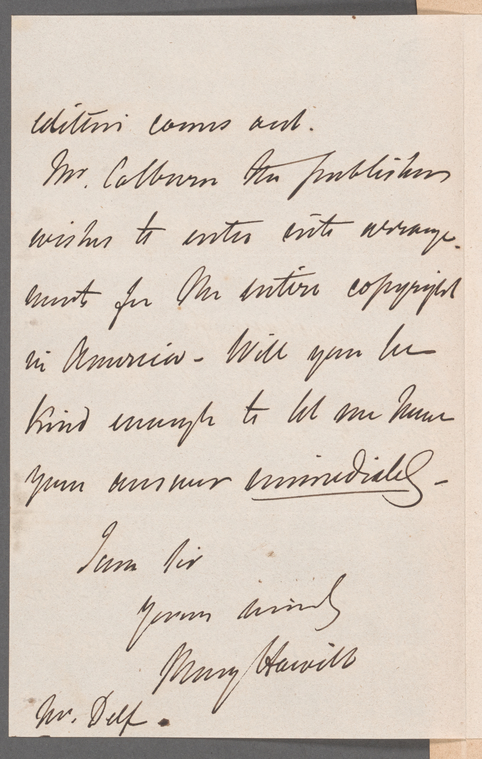 edition comes out.
Mr. Colburn the publisher
wishes to enter into arrange-
ments for the entire copyright
in America - Will you be
kind enough to let me have
your answer immediately -
I am Sir
yours sincerely
Mary Howitt
Mr. Delf.